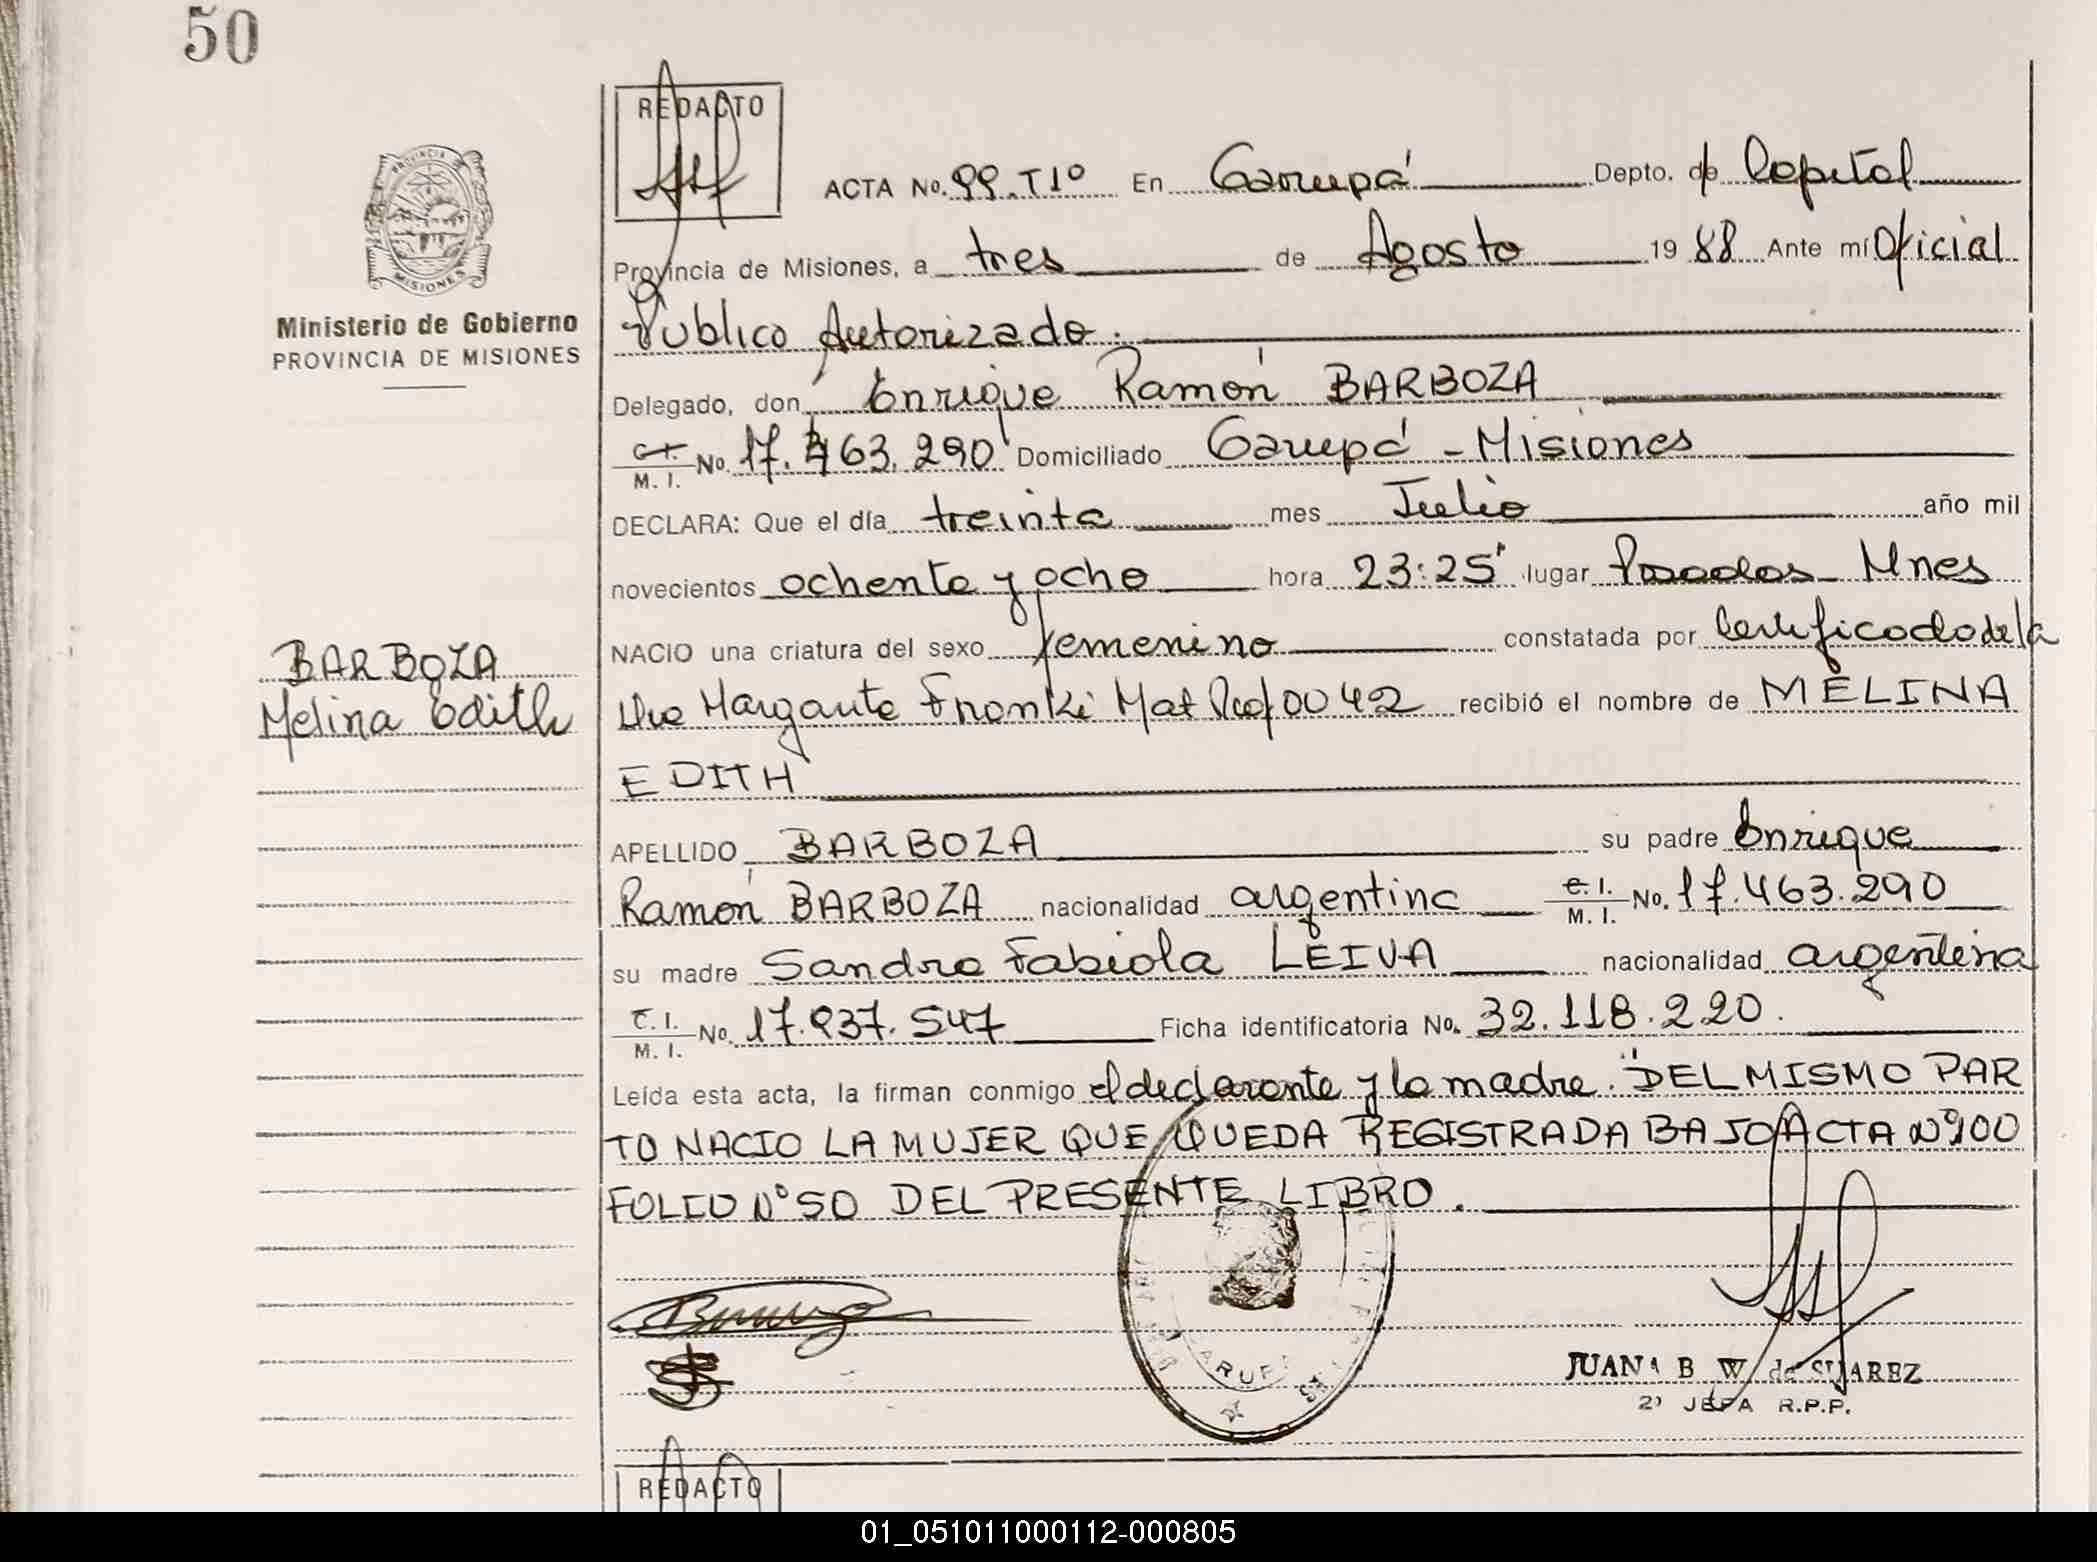 50
REDACTO
PROVINCIA DE MISIONES
Ministerio de Gobierno
PROVINCIA DE MISIONES
ACTA No. 99.T1º En Garupá Depto. de Capital
Provincia de Misiones, a tres de Agosto 1988 Ante mí Oficial
Publico Autorizado.
Delegado, don Enrique Ramón BARBOZA
C. I. M. I. No. 17.463.290 Domiciliado Garupá - Misiones
DECLARA: Que el día treinta mes Julio año mil
novecientos ochenta y ocho hora 23:25' lugar Posadas Mnes
NACIO una criatura del sexo femenino constatada por Certificado de la
BARBOZA
Melina Edith
Dra Margarita Fronki Mat Prof 0042 recibió el nombre de MELINA
EDITH
APELLIDO BARBOZA su padre Enrique
Ramón BARBOZA nacionalidad argentina C. I. M. I. No. 17.463.290
su madre Sandra Fabiola LEIVA nacionalidad argentina
C. I. M. I. No. 17.937.547 Ficha identificatoria No. 32.118.220.
Leída esta acta, la firman conmigo el declarante y la madre. DEL MISMO PAR
TO NACIO LA MUJER QUE QUEDA REGISTRADA BAJO ACTA Nº100
FOLIO Nº50 DEL PRESENTE LIBRO.
JUANA B W de SUAREZ
2º JEFA R.P.P.
REDACTO
01_051011000112-000805